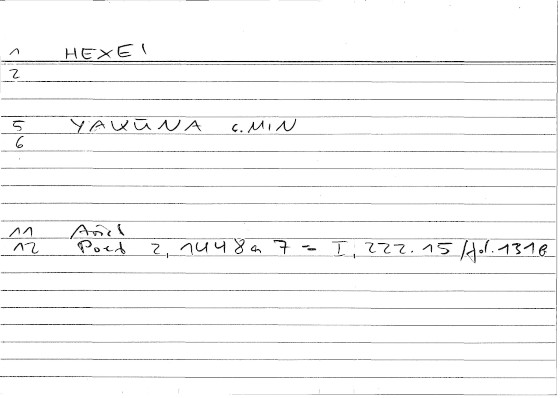 1 HEXEI
2
5 YAKŪNA c.MIN
6
11 Arist
12 Poet 2, 1448a 7 = I, 222.15/fol.131b